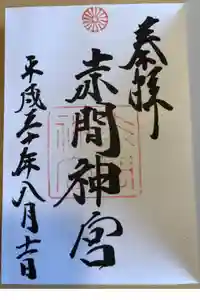 奉拝
赤間神宮
平成三十年八月十一日